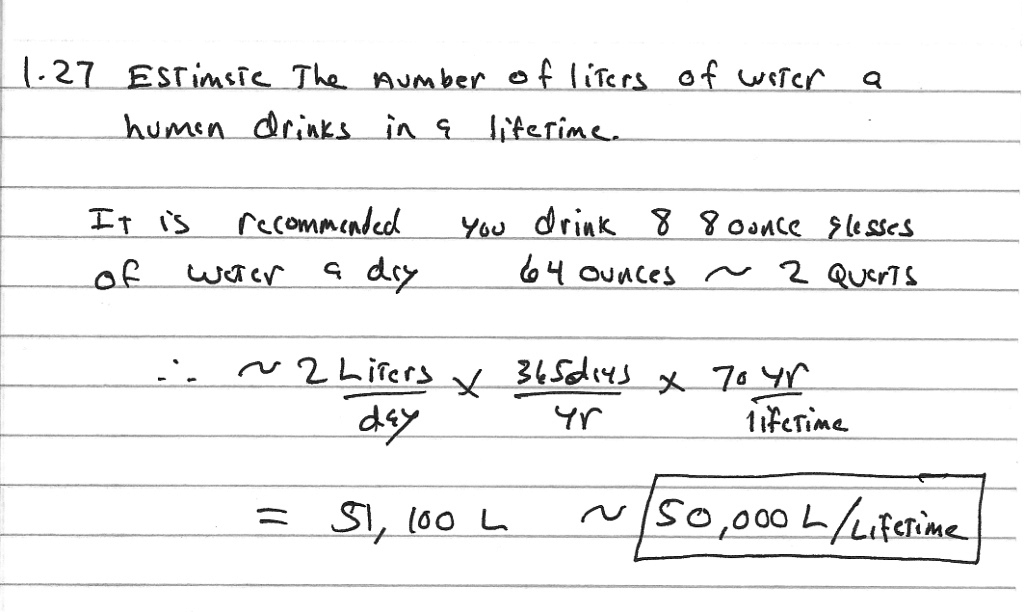 1.27 Estimate The number of liters of water a
human drinks in a lifetime.
It is recommended you drink 8 8 ounce glasses
of water a day 64 ounces ~ 2 Quarts
∴ ~ 2 Liters/day × 365 days/yr × 70 yr/lifetime
= 51,100 L ~ 50,000 L/Lifetime